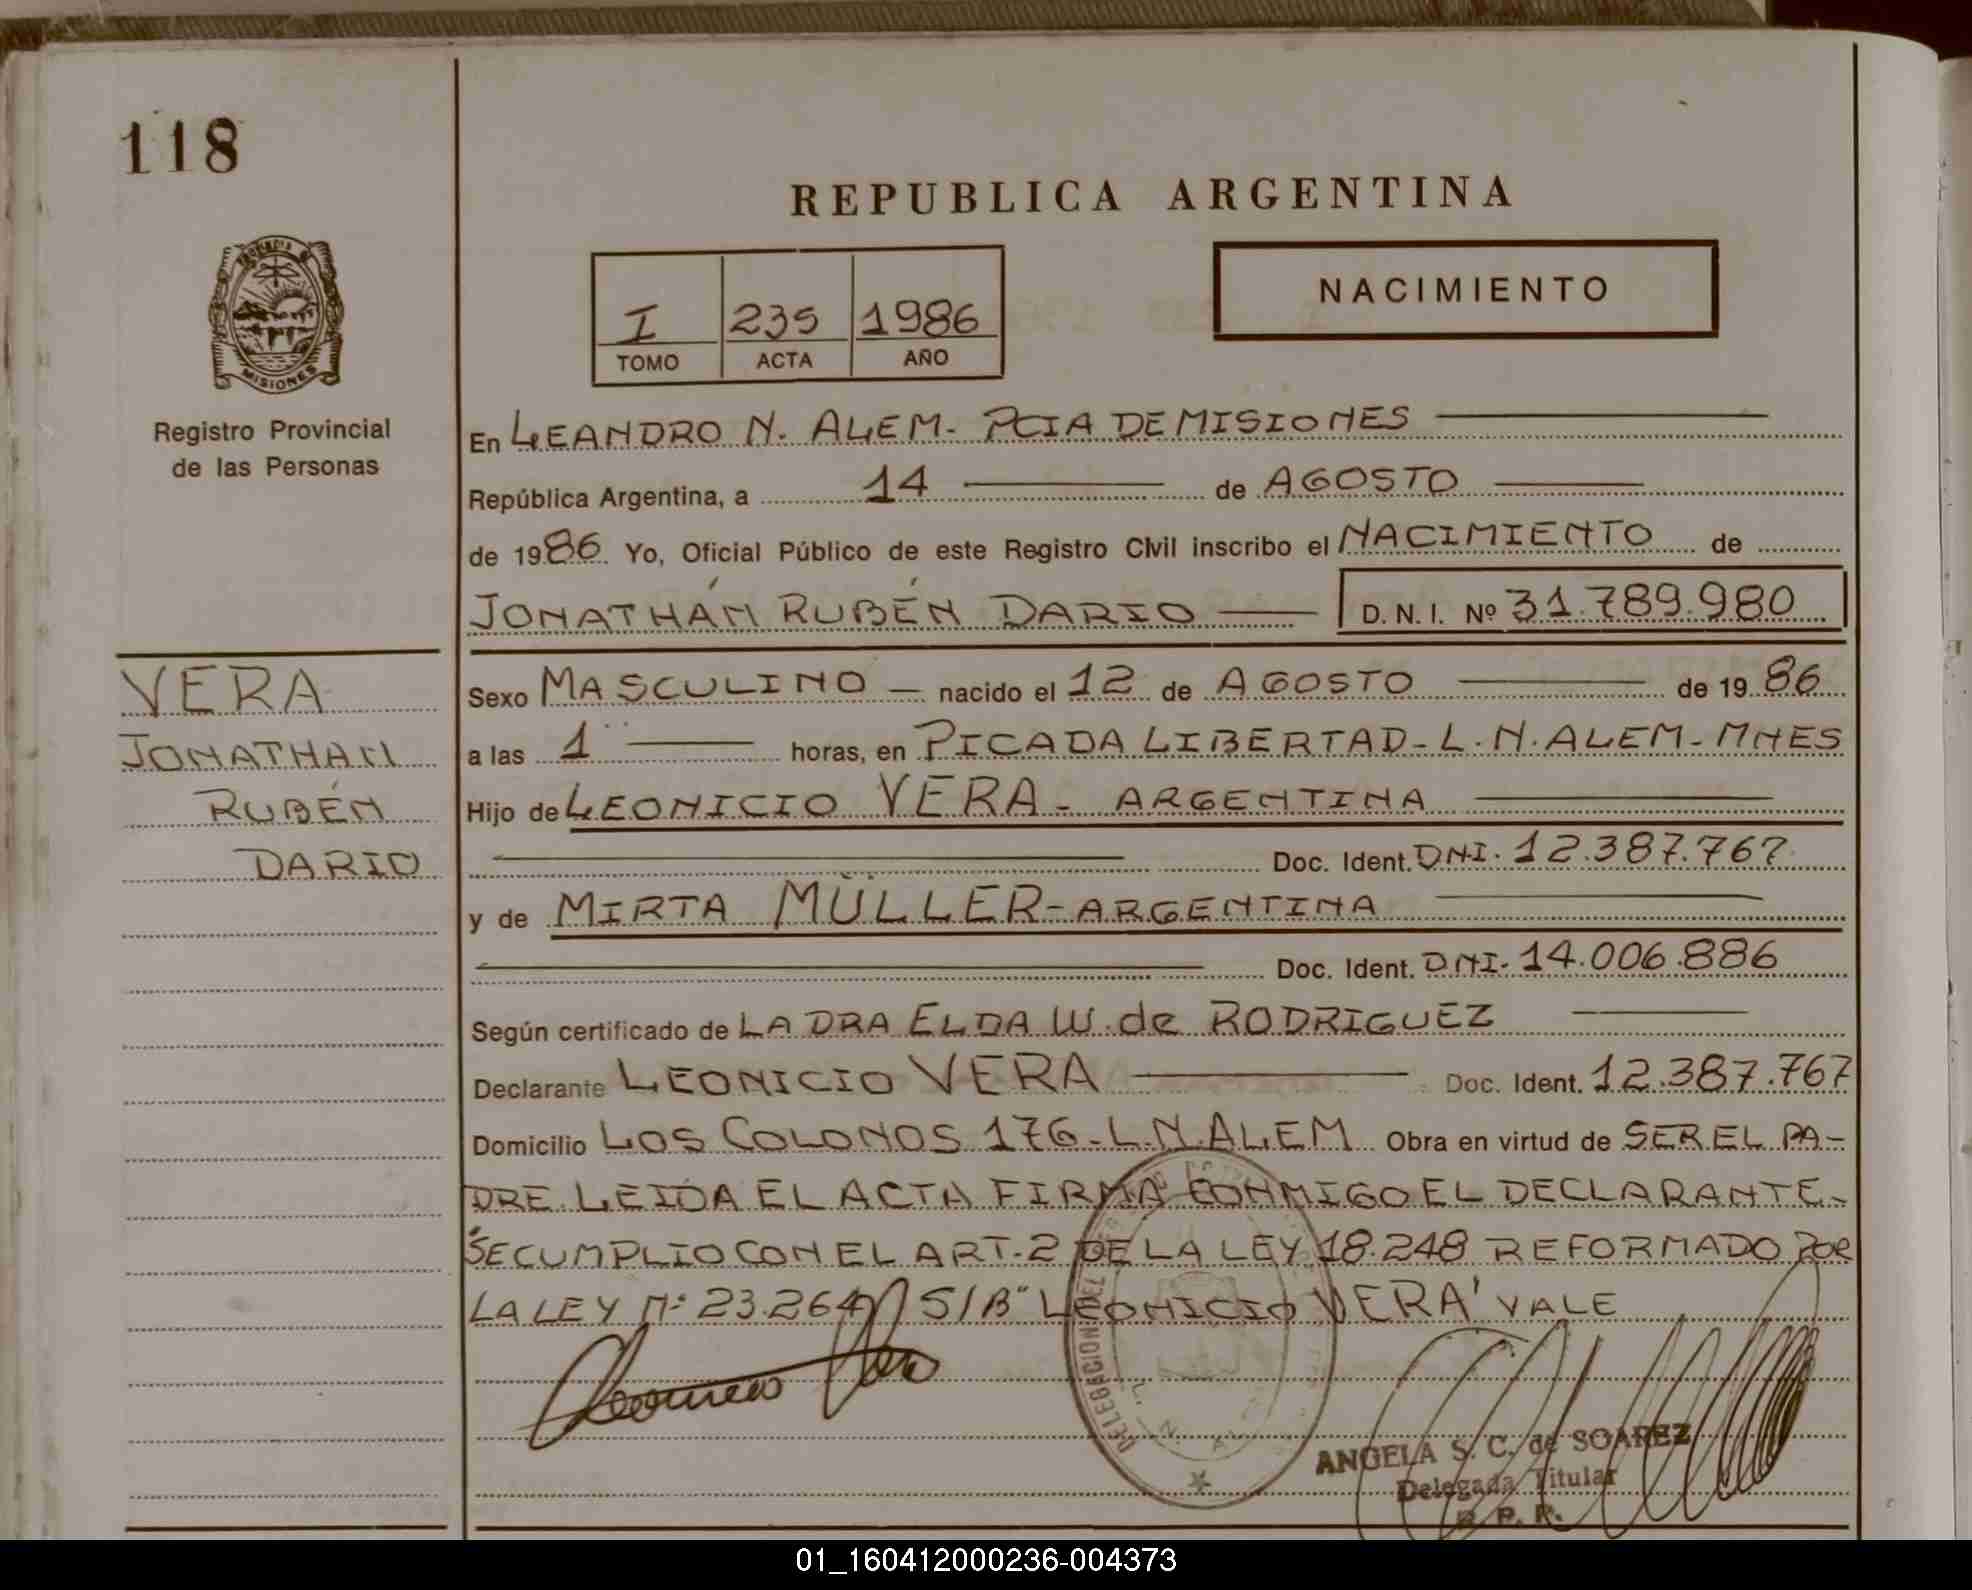 118
REPUBLICA ARGENTINA
MISIONES
Registro Provincial
de las Personas
I 235 1986
TOMO ACTA AÑO
NACIMIENTO
En LEANDRO N. ALEM - PCIA DE MISIONES
República Argentina, a 14 de AGOSTO
de 1986 Yo, Oficial Público de este Registro Civil inscribo el NACIMIENTO de
JONATHÁN RUBÉN DARIO D. N. I. Nº 31.789.980
VERA
JONATHAN
RUBÉN
DARIO
Sexo MASCULINO - nacido el 12 de AGOSTO de 1986
a las 1 horas, en PICADA LIBERTAD - L. N. ALEM - MNES
Hijo de LEONICIO VERA - ARGENTINA
Doc. Ident. DNI. 12.387.767
y de MIRTA MÜLLER - ARGENTINA
Doc. Ident. DNI- 14.006.886
Según certificado de LA DRA ELDA W. de RODRIGUEZ
Declarante LEONICIO VERA Doc. Ident. 12.387.767
Domicilio LOS COLONOS 176 - L. N. ALEM Obra en virtud de SER EL PA-
DRE. LEIDA EL ACTA FIRMA CONMIGO EL DECLARANTE -
SE CUMPLIO CON EL ART. 2 DE LA LEY 18.248 REFORMADO POR
LA LEY Nº 23.264 S/B "LEONICIO VERA" VALE
DELEGACION DEL
L. N. AL
ANGELA S. C. de SOAREZ
Delegada Titular
R. P. P.
01_160412000236-004373